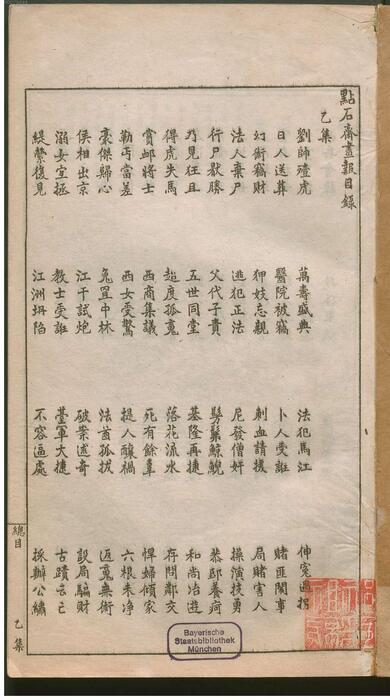 點石齋畫報目錄
乙集
劉帥殪虎 萬壽盛典 法犯馬江 伸冤過拐
日人送葬 醫院被竊 卜人受誑 賭匪鬧事
幻術竊財 狎妓忘親 刺血請援 局賭害人
法人棄尸 逃犯正法 尼發僧奸 操演技勇
行尸獃勝 父代子責 鬅鬆鯨鯢 恭邸養疴
乃見狂且 五世同堂 基隆再捷 和尚冶遊
得虎失馬 超度孤魂 落花流水 存問鄰交
賞卹將士 西商集議 死有餘辜 悍婦傾家
勒丐當差 西女受驚 提人釀禍 六根未淨
豪傑歸心 兔罝中林 法酋孤拔 返魂無術
侯相出京 江干試炮 破案述奇 設局騙財
溺女宜拯 教士受誑 臺軍大捷 古蹟云亡
緹縈復見 江洲坍陷 不容逼處 採辦公鏽
總目
乙集
Bayerische
Staatsbibliothek
München